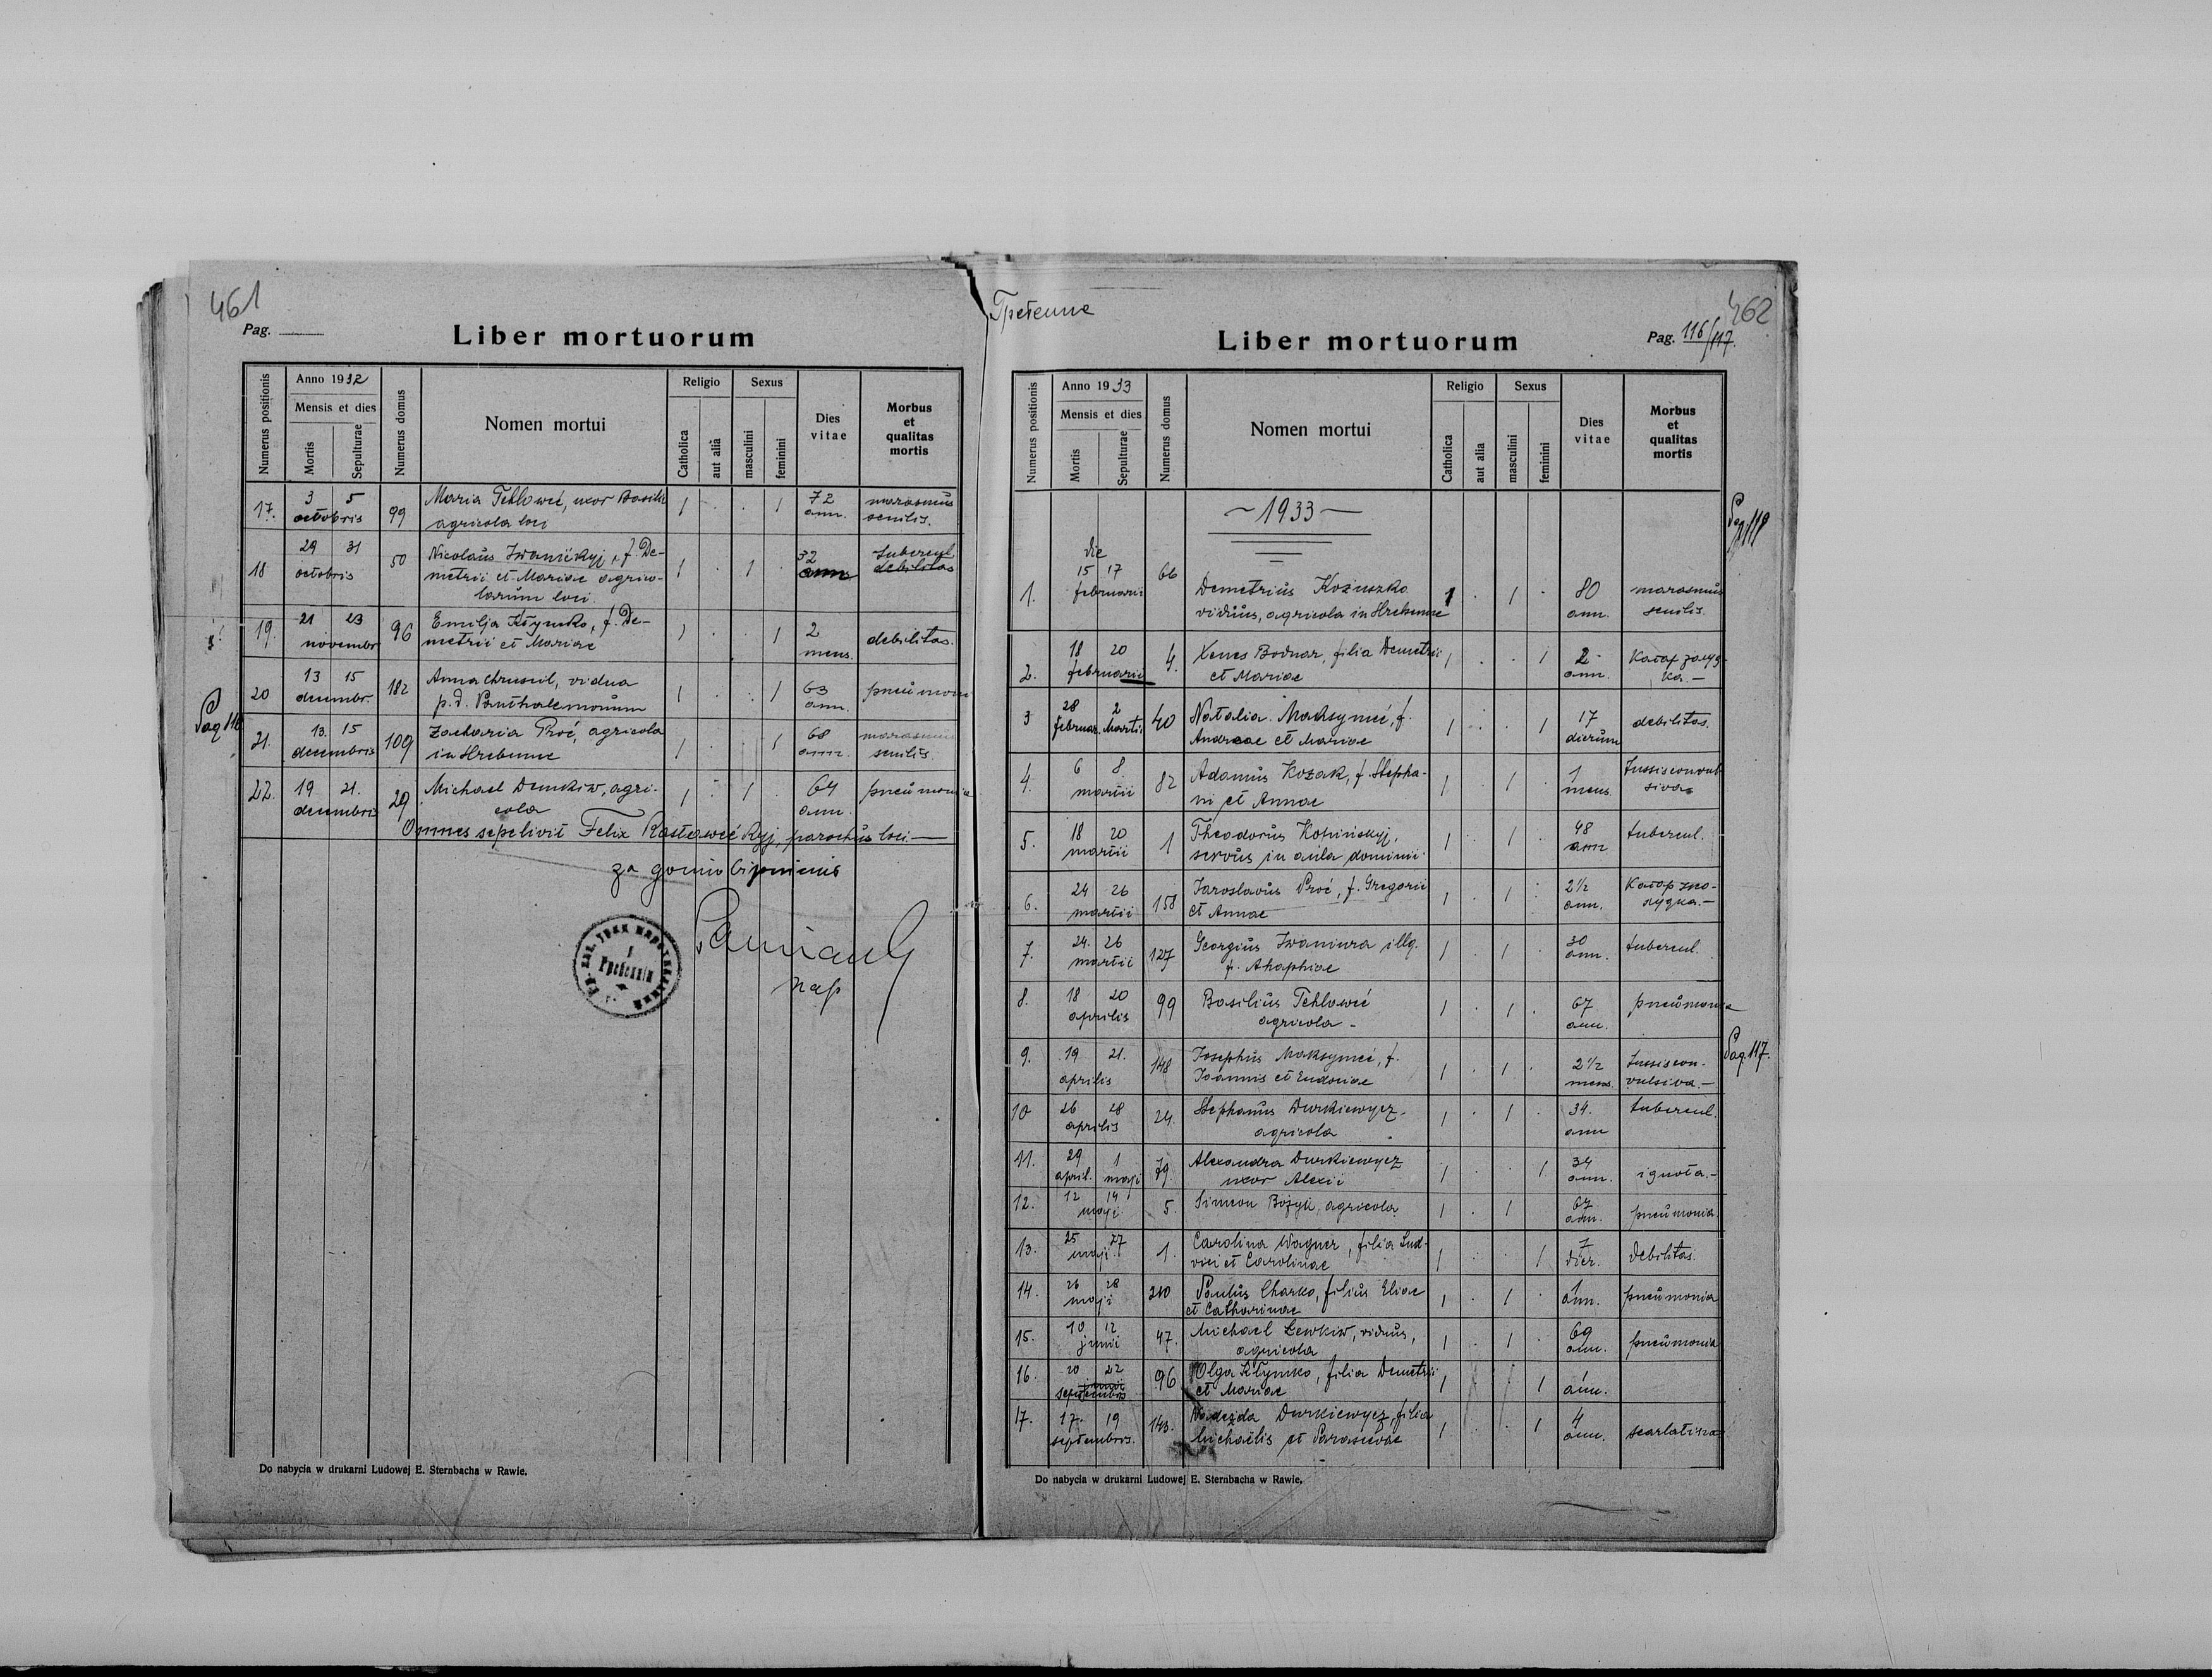 461
Pag.
Liber mortuorum
Numerus positionis
Anno 1932
Mensis et dies
Mortis
Sepulturae
Numerus domus
Nomen mortui
Religio
Catholica
aut alià
Sexus
masculini
feminini
Dies vitae
Morbus et qualitas mortis
17. 3 5 octobris 99 Maria Tehloweć, uxor Basilii 1 . . 1 72 ann. marasmus senilis.
agricola loci
18 29 31 octobris 50 Nicolaus Iwanićkyj, f. De- 1 . 1 . 32 ann tubercul debilitas
metrii et Mariae agrico-
larum loci.
19. 21 23 novembr 96 Emilja Kłymko, f. De- 1 . 1 2 mens. debilitas.
metrii et Mariae
20 13 15 decembr. 182 Anna Chruscil, vidua 1 . . 1 63 ann. pneumoni
p. d. Panthalemonum
Pag 118
21. 13. 15 decembris 109 Zacharia Proć, agricola 1 . 1 68 ann. marasmus senilis.
in Hrebenne
22. 19 21. decembris 29 Michael Demkiw, agri- 1 . 1 . 64 ann. pneumonia
cola
Omnes sepelivit Felix parochus loci. —
за
пар
Гребенне
462
Pag. 116/117.
Liber mortuorum
Numerus positionis
Anno 1933
Mensis et dies
Mortis
Sepulturae
Numerus domus
Nomen mortui
Religio
Catholica
aut alia
Sexus
masculini
feminini
Dies vitae
Morbus et qualitas mortis
— 1933 —
Pag. 118
1. die 15 17 februarii 66 Demetrius Kożuszko 1 . 1 . 80 ann. marasmus senilis.
viduus, agricola in Hrebenne
2. 18 20 februarii 4. Xenes Bodnar, filia Demetrii 1 . . 1 2 ann. Катар
et Mariae
3 28 2 februar. Martii 40 Natalia Maksymeć, f. 1 . . 1 17 dierum debilitas.
Andreae et Mariae
4. 6 8 martii 82 Adamus Kozak, f. Stepha- 1 . 1 1 mens tussis convul-
ni et Annae siva
5. 18 20 martii 1 Theodorus Kopinskyj, 1 . 1 . 48 ann tubercul.
servus in aula dominii.
6. 24 26 martii 158 Iaroslavus Proć, f. Gregorii 1 . 1 . 2½ ann. Катар
et Annae
7. 24. 26 martii 127 Georgius Iwaniura illg. 1 . 1 . 30 ann. tubercul.
f. Ahaphiae
8. 18 20 aprilis 99 Basilius Tehloweć 1 . 1 . 67 ann. pneumonia
agricola
9. 19 21. aprilis 148 Josephus Maksymeć, f. 1 . 1 . 2½ mens. tussis con-
Joannis et Eudoxiae vulsiva. —
Pag. 117.
10 26 28 aprilis 24. Stephanus Durkiewycz 1 . 1 . 34. ann tubercul.
agricola
11. 29 1 april. maji 79. Alexandra Durkiewycz 1 . . 1 34 ann. ignota. —
uxor Alexii
12. 12 14 maji 5. Simeon Bożyk, agricola 1 . 1 67 ann. pneumonia
13. 25 27 maji 1. Carolina Wagner, filia Lud- 1 . . 1 7 dier. debilitas
vici et Carolinae
14. 26 28 maji 210 Paulus Charko, filius Eliae 1 . 1 . 1 ann. pneumonia
et Catharinae
15. 10 12 junii 47. Michael Lewkiw, viduus, 1 . 1 . 69 ann. pneumonia
agricola
16. 20 22 junii septembris 96 Olga Kłymko, filia Demetrii 1 1 1 ann.
et Mariae
17. 17. 19 septembris. 143. Nadezda Durkiewycz, filia 1 . . 1 4 ann. scarlatina
Michaëlis et Parascevae
Do nabycia w drukarni Ludowej E. Sternbacha w Rawie.
Do nabycia w drukarni Ludowej E. Sternbacha w Rawie.